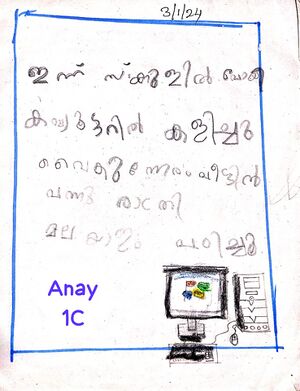 3/1/24
ഇന്ന് സ്കൂളിൽ പോയി
കമ്പ്യൂട്ടറിൽ കളിച്ചു
വൈകുന്നേരം വീട്ടിൽ
വന്നു രാത്രി
മലയാളം പഠിച്ചു.
Anay
1C